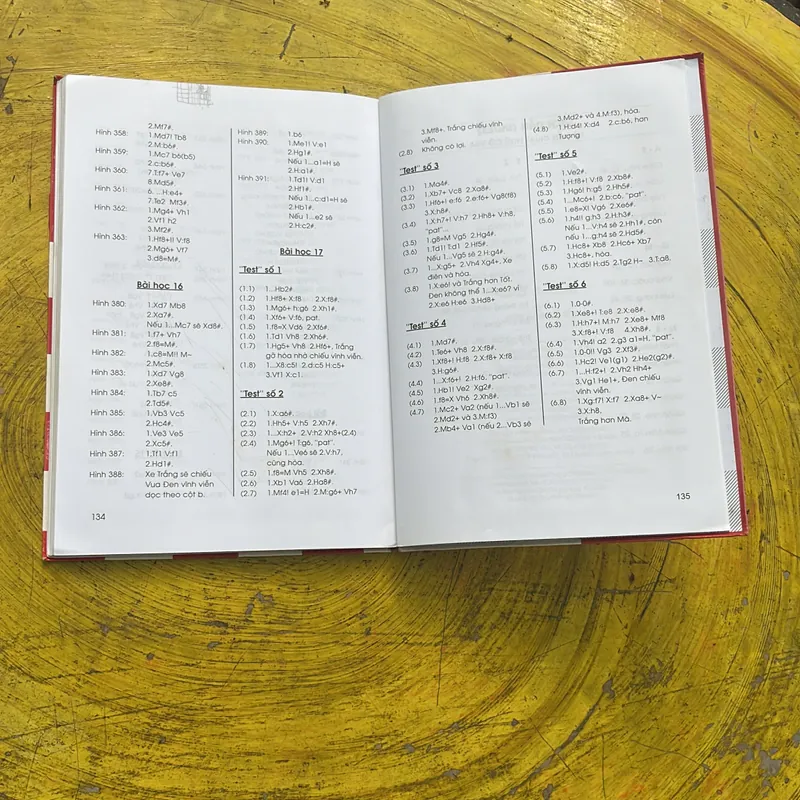 2.Mf7#.
Hình 358: 1.Md7! Tb8
2.M:b6#.
Hình 359: 1.Mc7 b6(b5)
2.c:b6#.
Hình 360: 7.T:f7+ Ve7
8.Md5#.
Hình 361: 6. ...H:e4+
7.Te2 Mf3#.
Hình 362: 1.Mg4+ Vh1
2.Vf1 h2
3.Mf2#.
Hình 363: 1.Hf8+!! V:f8
2.Mg6+ Vf7
3.d8=M#.
Bài học 16
Hình 380: 1.Xd7 Mb8
2.Xa7#.
Nếu 1...Mc7 sẽ Xd8#.
Hình 381: 1.f7+ Vh7
2.f8=M#.
Hình 382: 1.c8=M!! M~
2.Mc5#.
Hình 383: 1.Xd7 Vg8
2.Xe8#.
Hình 384: 1.Tb7 c5
2.Td5#.
Hình 385: 1.Vb3 Vc5
2.Hc4#.
Hình 386: 1.Ve3 Ve5
2.Xc5#.
Hình 387: 1.Tf1 V:f1
2.Hd1#.
Hình 388: Xe Trắng sẽ chiếu
Vua Đen vĩnh viễn
dọc theo cột b.
134
Hình 389: 1.b6
Hình 390: 1.Me1! V:e1
2.Hg1#.
Nếu 1...a1=H sẽ
2.H:a1#.
Hình 391: 1.Td1! V:d1
2.Hf1#.
Nếu 1...c:d1=H sẽ
2.Hb1#.
Nếu 1...e2 sẽ
2.H:c2#.
Bài học 17
"Test" số 1
(1.1) 1...Hb2#
(1.2) 1.Hf8+ X:f8 2.X:f8#.
(1.3) 1.Mg6+ h:g6 2.Xh1#.
(1.4) 1.Xf6+ V:f6, pat.
(1.5) 1.f8=X Vd6 2.Xf6#.
(1.6) 1.Td1 Vh8 2.Xh6#.
(1.7) 1.Hg5+ Vh8 2.Hf6+, Trắng
gỡ hòa nhờ chiếu vĩnh viễn.
(1.8) 1...X8:c5! 2.d:c5 H:c5+
3.Vf1 X:c1.
"Test" số 2
(2.1) 1.X:a6#.
(2.2) 1.Hh5+ V:h5 2.Xh7#.
(2.3) 1...X:h2+ 2.V:h2 Xh8+(2.4)
(2.4) 1.Mg6+! T:g6, "pat".
Nếu 1...Ve6 sẽ 2.V:h7,
cũng hòa.
(2.5) 1.f8=M Vh5 2.Xh8#.
(2.6) 1.Xb1 Va6 2.Ha8#.
(2.7) 1.Mf4! e1=H 2.M:g6+ Vh7
3.Mf8+, Trắng chiếu vĩnh
viễn.
(2.8) Không có lợi.
"Test" số 3
(3.1) 1.Ma4#.
(3.2) 1.Xb7+ Vc8 2.Xa8#.
(3.3) 1.Hf6+! e:f6 2.e:f6+ Vg8(f8)
3.X:h8#.
(3.4) 1.X:h7+! V:h7 2.Hh8+ V:h8,
"pat".
(3.5) 1.g8=M Vg5 2.Hg4#.
(3.6) 1.Td1! T:d1 2.Hf5#.
Nếu 1...Vg5 sẽ 2.H:g4#.
(3.7) 1...X:g5+ 2.Vh4 Xg4+, Xe
điên và hòa.
(3.8) 1.X:e6! và Trắng hơn Tốt.
Đen không thể 1...X:e6? vì
2.X:e6 H:e6 3.Hd8+
"Test" số 4
(4.1) 1.Md7#.
(4.2) 1.Te6+ Vh8 2.X:f8#.
(4.3) 1.X:f8+! H:f8 2.X:f8+ X:f8
3.H:g6#.
(4.4) 1...X:f6+! 2.H:f6, "pat".
(4.5) 1.Hb1! Ve2 Xg2#.
(4.6) 1.f8=X Vh6 2.Xh8#.
(4.7) 1.Mc2+ Va2 (nếu 1...Vb1 sẽ
2.Md2+ và 3.M:f3)
2.Mb4+ Va1 (nếu 2...Vb3 sẽ
3.Md2+ và 4.M:f3), hòa.
(4.8) 1.H:d4! X:d4 2.c:b6, hơn
Tượng
"Test" số 5
(5.1) 1.Ve2#.
(5.2) 1.H:f8+! V:f8 2.Xb8#.
(5.3) 1.Hg6! h:g5 2.Hh5#.
(5.4) 1...Mc6+! 2.b:c6, "pat".
(5.5) 1.e8=X! Vg6 2.Xe6#.
(5.6) 1.h4!! g:h3 2.H:h3#.
Nếu 1...V:h4 sẽ 2.Hh1#, còn
nếu 1...g:h4 sẽ 2.Hd5#.
(5.7) 1.Hc8+ Xb8 2.Hc6+ Xb7
3.Hc8+, hòa.
(5.8) 1.X:d5! H:d5 2.Tg2 H~ 3.T:a8.
"Test" số 6
(6.1) 1.0-0#.
(6.2) 1.Xe8+! T:e8 2.X:e8#.
(6.3) 1.H:h7+! M:h7 2.Xe8+ Mf8
3.X:f8+! V:f8 4.Xh8#.
(6.4) 1.Vh4! a2 2.g3 a1=H, "pat".
(6.5) 1.0-0!! Vg3 2.Xf3#.
(6.6) 1.Hc2! Ve1(g1) 2.He2(g2)#.
(6.7) 1...H:f2+! 2.Vh2 Hh4+
3.Vg1 He1+, Đen chiếu
vĩnh viễn.
(6.8) 1.Xg:f7! X:f7 2.Xa8+ V~
3.X:h8,
Trắng hơn Mã.
135